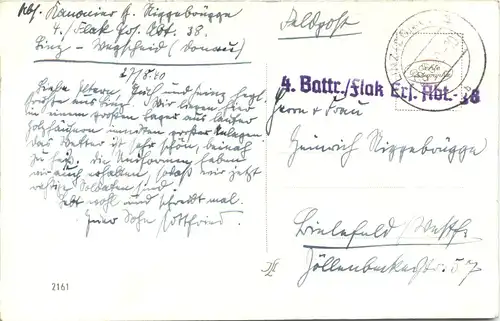 Abs. Kanonier G. Niggebrügge
4./Flak Ers. Abt. 38.
Linz-Wegscheid (Donau)
27/5.40
Liebe Eltern, Euch und seid herzl.
Grüße aus Linz. Wir liegen hier
in einem großen Lager aus lauter
Holzhäusern inmitten großer Anlagen.
Das Wetter ist sehr schön, beinah
zu heiß. Die Uniformen haben
wir auch erhalten, sodaß wir jetzt
richtige Soldaten sind.
Lebt wohl und schreibt mal.
Euer Sohn Gottfried.
Feldpost
4. Battr./Flak Ers. Abt. 38
Herrn & Frau
Heinrich Niggebrügge
Bielefeld/Westf.
Jöllenbeckerstr. 57
2161